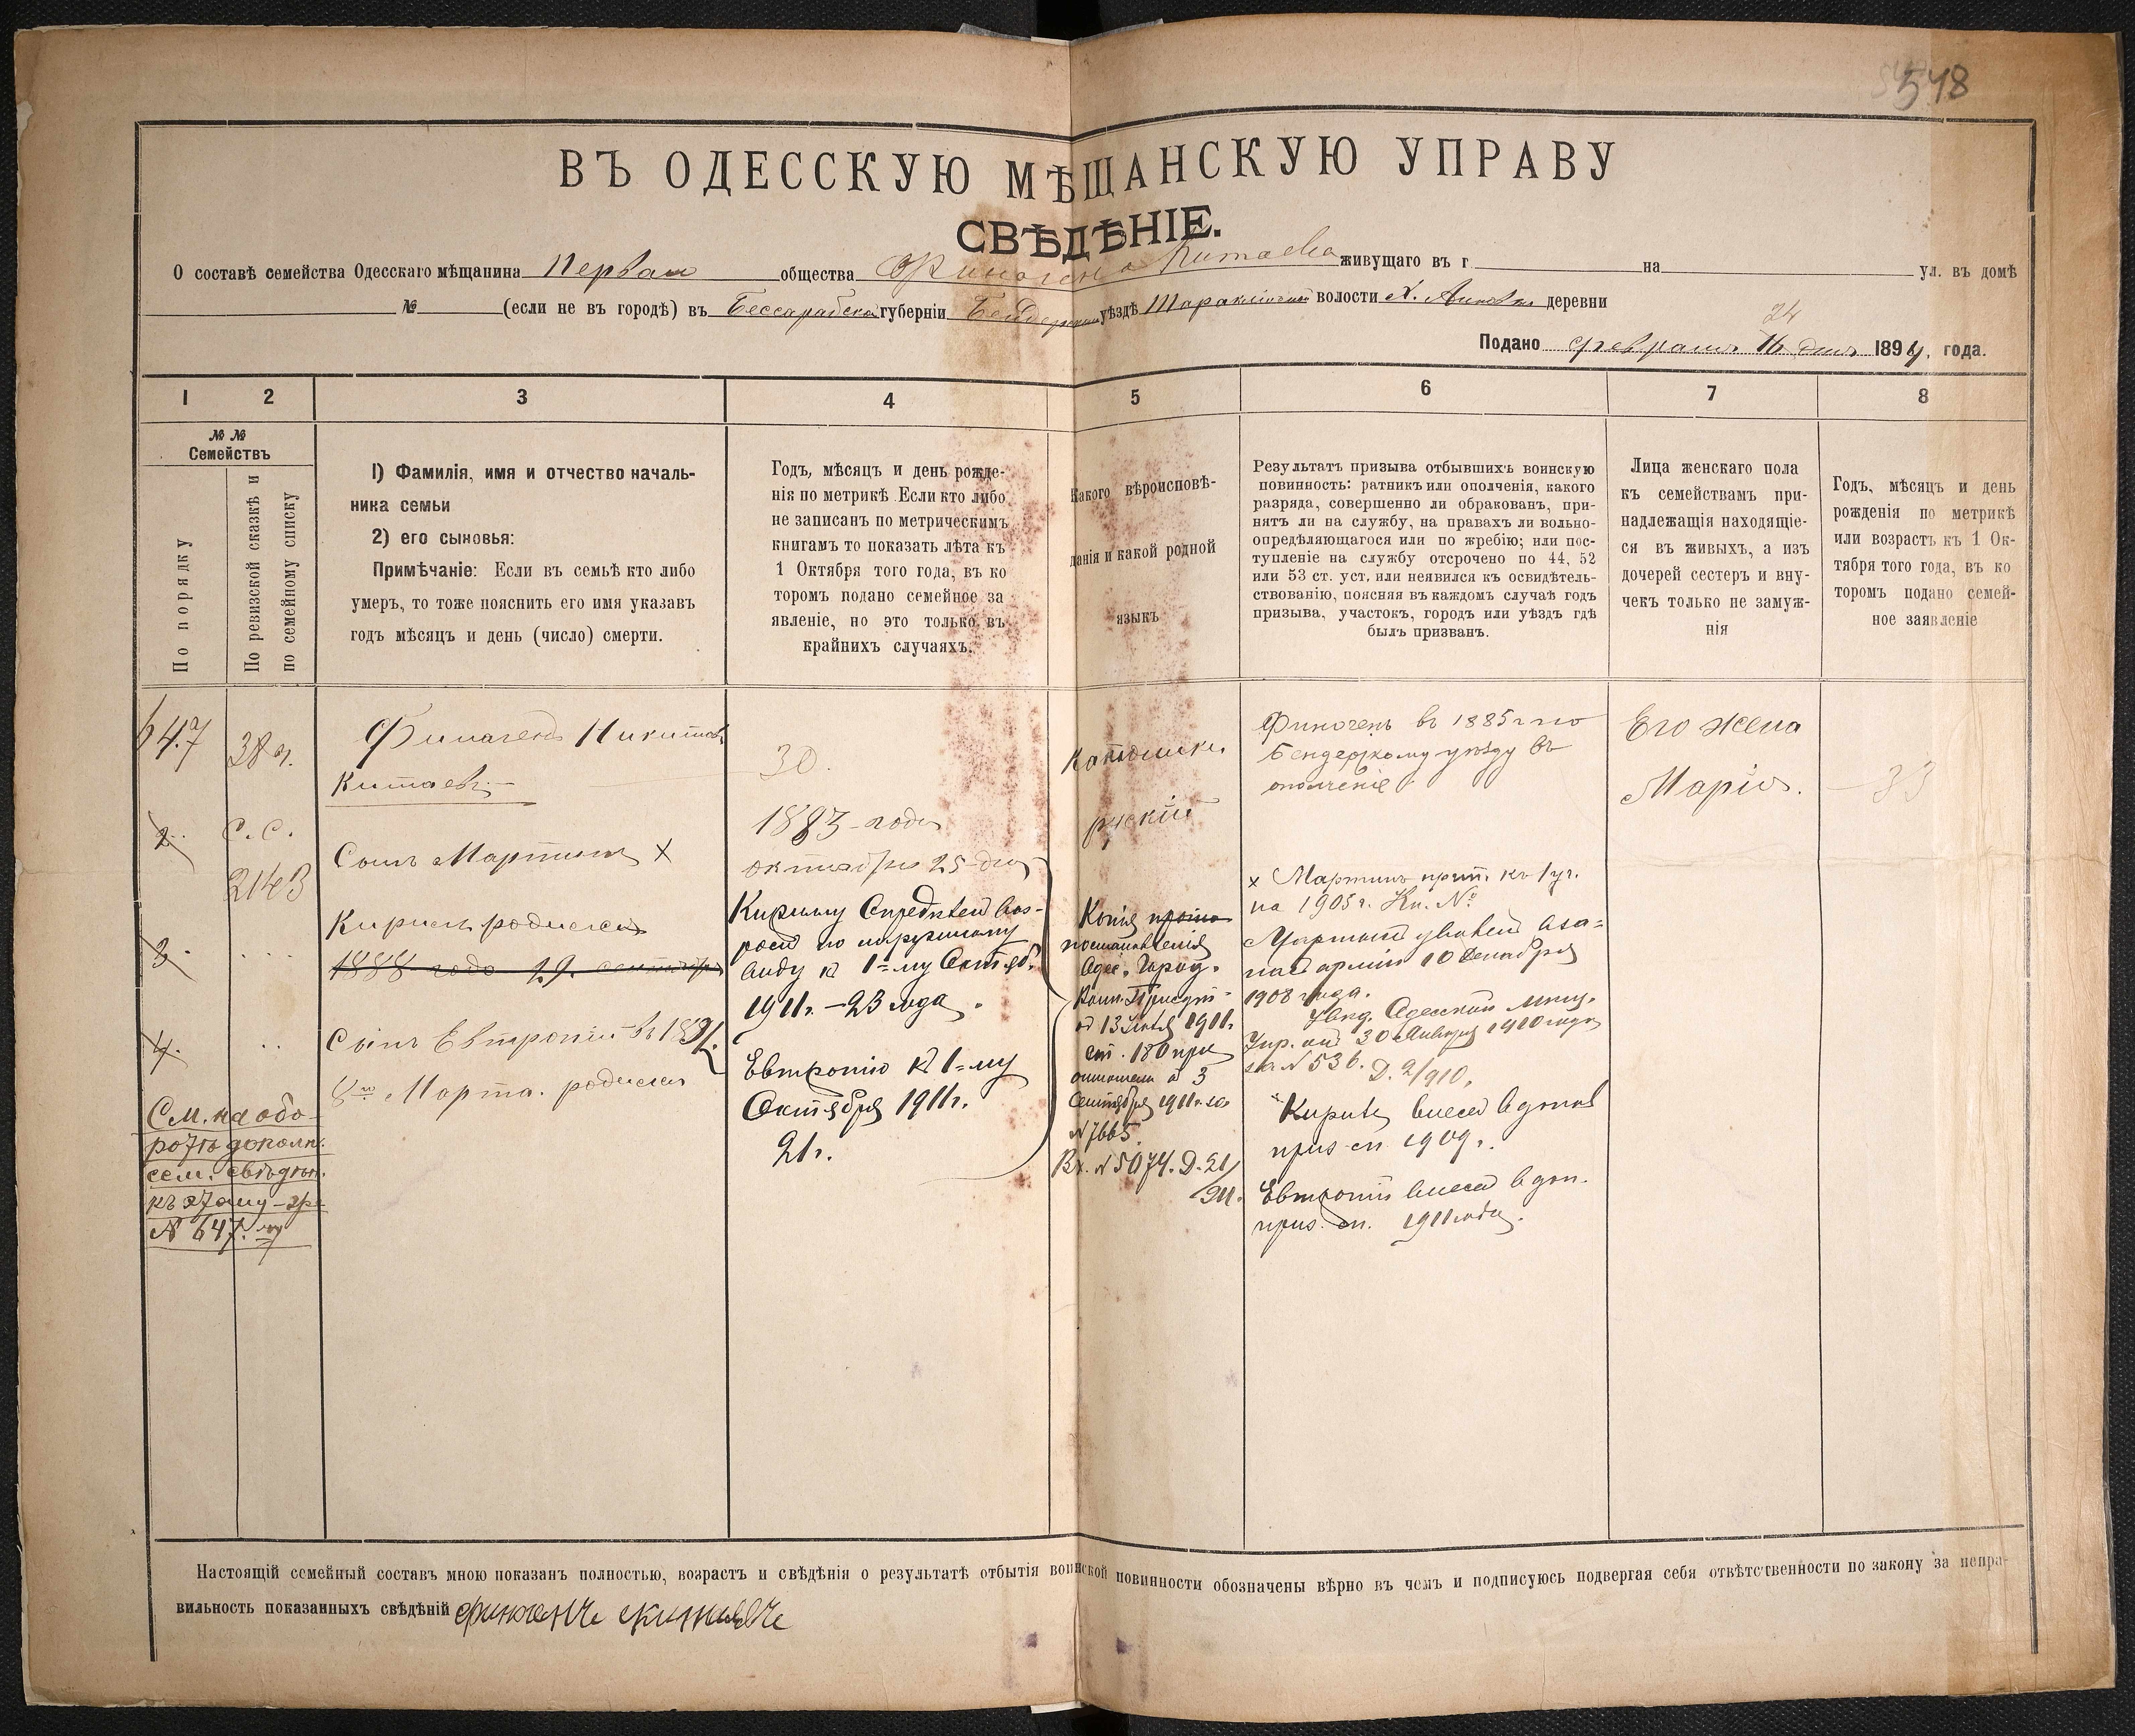 548
ВЪ ОДЕССКУЮ МѢЩАНСКУЮ УПРАВУ
СВѢДѢНІЕ.
О составѣ семейства Одесскаго мѣщанина Перваго общества Финогена Китаева живущаго въ г. на ул. въ домѣ
№ (если не въ городѣ) въ Бессарабской губерніи Бендерскомъ уѣздѣ волости х. деревни
24
Подано февраля 16 дня 1894, года.
1 2 3 4 5 6 7 8
№ №
Семействъ
По порядку
По ревизской сказкѣ и
по семейному списку
1) Фамилія, имя и отчество началь-
ника семьи
2) его сыновья:
Примѣчаніе: Если въ семьѣ кто либо
умеръ, то тоже пояснить его имя указавъ
годъ мѣсяцъ и день (число) смерти.
Годъ, мѣсяцъ и день рожде-
нія по метрикѣ. Если кто либо
не записанъ по метрическимъ
книгамъ то показать лѣта къ
1 Октября того года, въ ко
торомъ подано семейное за
явленіе, но это только въ
крайнихъ случаяхъ.
Какого вѣроисповѣ-
данія и какой родной
языкъ
Результатъ призыва отбывшихъ воинскую
повинность: ратникъ или ополченія, какого
разряда, совершенно ли обракованъ, при-
нятъ ли на службу, на правахъ ли вольно-
опредѣляющагося или по жребію; или пос-
тупленіе на службу отсрочено по 44, 52
или 53 ст. уст. или неявился къ освидѣтель-
ствованію, поясняя въ каждомъ случаѣ годъ
призыва, участокъ, городъ или уѣздъ гдѣ
былъ призванъ.
Лица женскаго пола
къ семействамъ при-
надлежащія находящіе-
ся въ живыхъ, а изъ
дочерей сестеръ и вну-
чекъ только не замуж-
нія
Годъ, мѣсяцъ и день
рожденія по метрикѣ
или возрастъ къ 1 Ок-
тября того года, въ ко
торомъ подано семей-
ное заявленіе
647
2.
3.
4.
См. на обо-
ротѣ дополн.
сем. свѣдѣн.
къ этому-же
№ 647.му
С. С.
2143
Финогенъ Никитовъ
Китаевъ
Сынъ Мартинъ х
Кирилъ родился
1888 года 29 сентября
Сынъ Евтропій въ 1891.
8го Марта. родился
30.
1883 года
октября 25 дня
Кирилу Опредѣлен воз-
раст по наружному
виду к 1=му Октяб.
1911г. - 23 года.
Евтропію к 1=му
Октября 1911г.
21г.
русскій
Копія
постановленія
Одес. Город.
Воин. Присут-
от 13 1911г.
ст. 180 при
отношеніи от 3
Сентября 1911г. за
№ 7665.
Вх. № 5074. Д. 21/
911.
Финогенъ въ 1885г по
Бендерскому уѣзду въ
ополченіе
х Мартинъ прип. къ 1 уч.
на 1905г. Кн. №
Мартын уволен в за-
пас арміи 10 Декабря
1908 года.
Увѣд. Одесской Мѣщ.
Упр. от 30 Января 1910 года
за № 536. Д. 2/910,
х Кирилъ внесен в допол.
приз. сп. 1909г.
Евтропій внесен в доп.
приз. сп. 1911 года.
Его жена
Марія.
33
Настоящій семейный составъ мною показанъ полностью, возрастъ и свѣдѣнія о результатѣ отбытія воинской повинности обозначены вѣрно въ чемъ и подписуюсь подвергая себя отвѣтственности по закону за непра-
вильность показанныхъ свѣдѣній